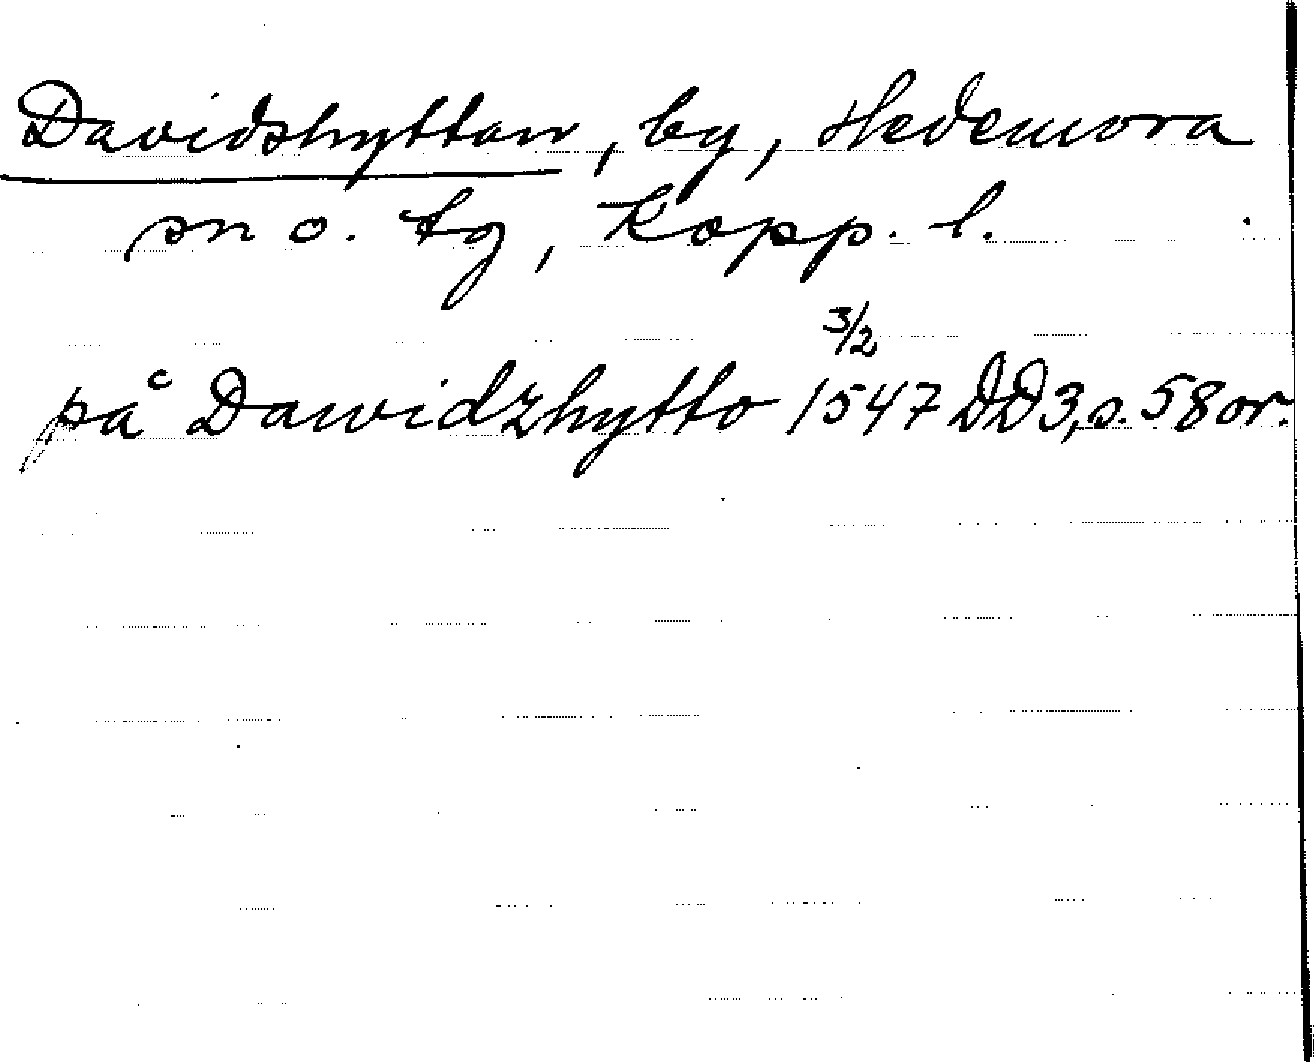 Davidshyttan, by, Hedemora
sn o. tg, Kopp. l.
3/2
på Dawidzhytto 1547 DD3, s. 58 or.